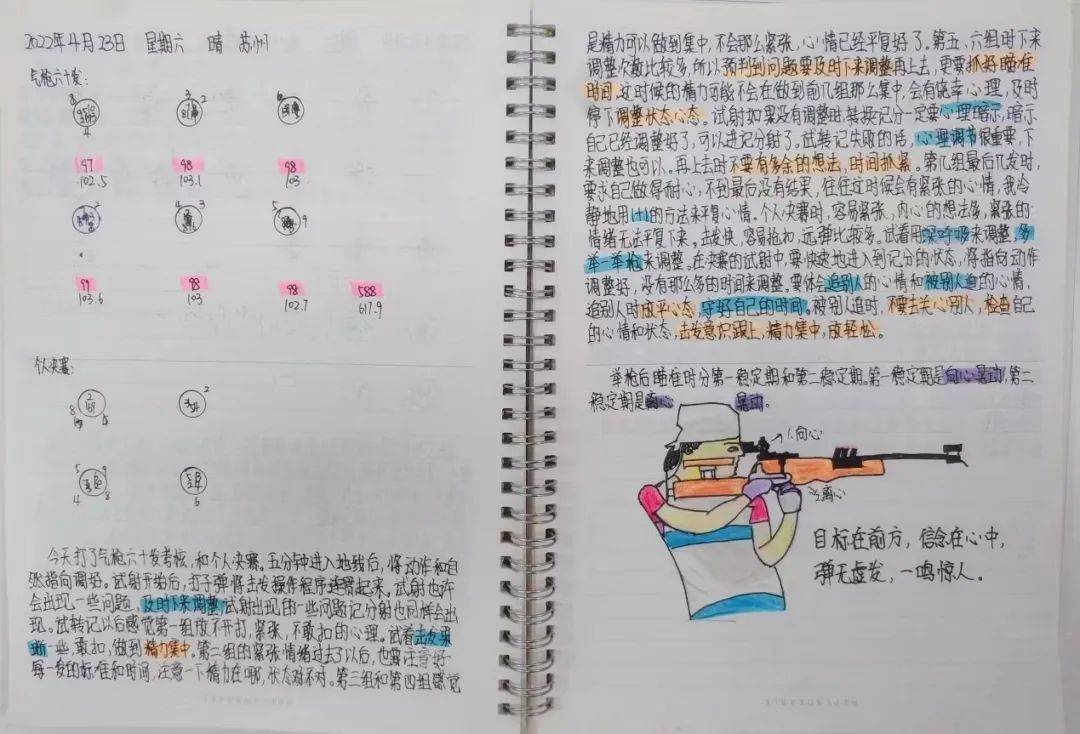 2022年4月23日 星期六 晴 苏州
气枪六十发:
8
4
3 2
6
97 98 98
102.5 103.1 103
2
4 3
5 9
99 98 98 588
103.6 103 102.7 617.9
个人决赛:
2
8 4
2
5 9
4 8
6
今天打了气枪六十发考核,和个人决赛。五分钟进入地线后,将动作和自
然指向调好。试射开始后,打子弹将击发操作程序连贯起来。试射也许
会出现一些问题,及时下来调整,试射出现的一些问题记分射也同样会出
现。试转记以后感觉第一组放不开打,紧张,不敢扣的心理。试着击发果
断一些,敢扣,做到精力集中。第二组的紧张情绪过去了以后,也要注意好
每一发的标准和时间,注意一下精力在哪,状态对不对。第三组和第四组感觉
是精力可以做到集中,不会那么紧张,心情已经平复好了。第五、六组时下来
调整次数比较多,所以预判到问题要及时下来调整再上去,更要抓好瞄准
时间,这时候的精力可能不会在做到前几组那么集中,会有侥幸心理,及时
停下调整状态心态。试射如果没有调整时,转换记分一定要心理暗示,暗示
自己已经调整好了,可以进记分射了。试转记失败的话,心理调节很重要,下
来调整也可以。再上去时不要有多余的想法,时间抓紧。第几组最后几发时,
要求自己做得耐心,不到最后没有结果,往往这时候会有紧张的心情,我冷
静地用的方法来平复心情。个人决赛时,容易紧张,内心的想法多,紧张的
情绪无法平复下来。击发快,容易抢扣,远弹比较多。试着用深呼吸来调整,多
举一举枪来调整。在决赛的试射中,要快速地进入到记分的状态,将指向动作
调整好,没有那么多的时间来调整。要体会追别人的心情和被别人追的心情,
追别人时放平心态,守好自己的时间。被别人追时,不要去关心别人,检查自己
的心情和状态,击发意识跟上,精力集中,放轻松。
举枪后瞄准时分第一稳定期和第二稳定期。第一稳定期是向心晃动,第二
稳定期是离心晃动。
1.向心
2.离心
目标在前方,信念在心中,
弹无虚发,一鸣惊人。